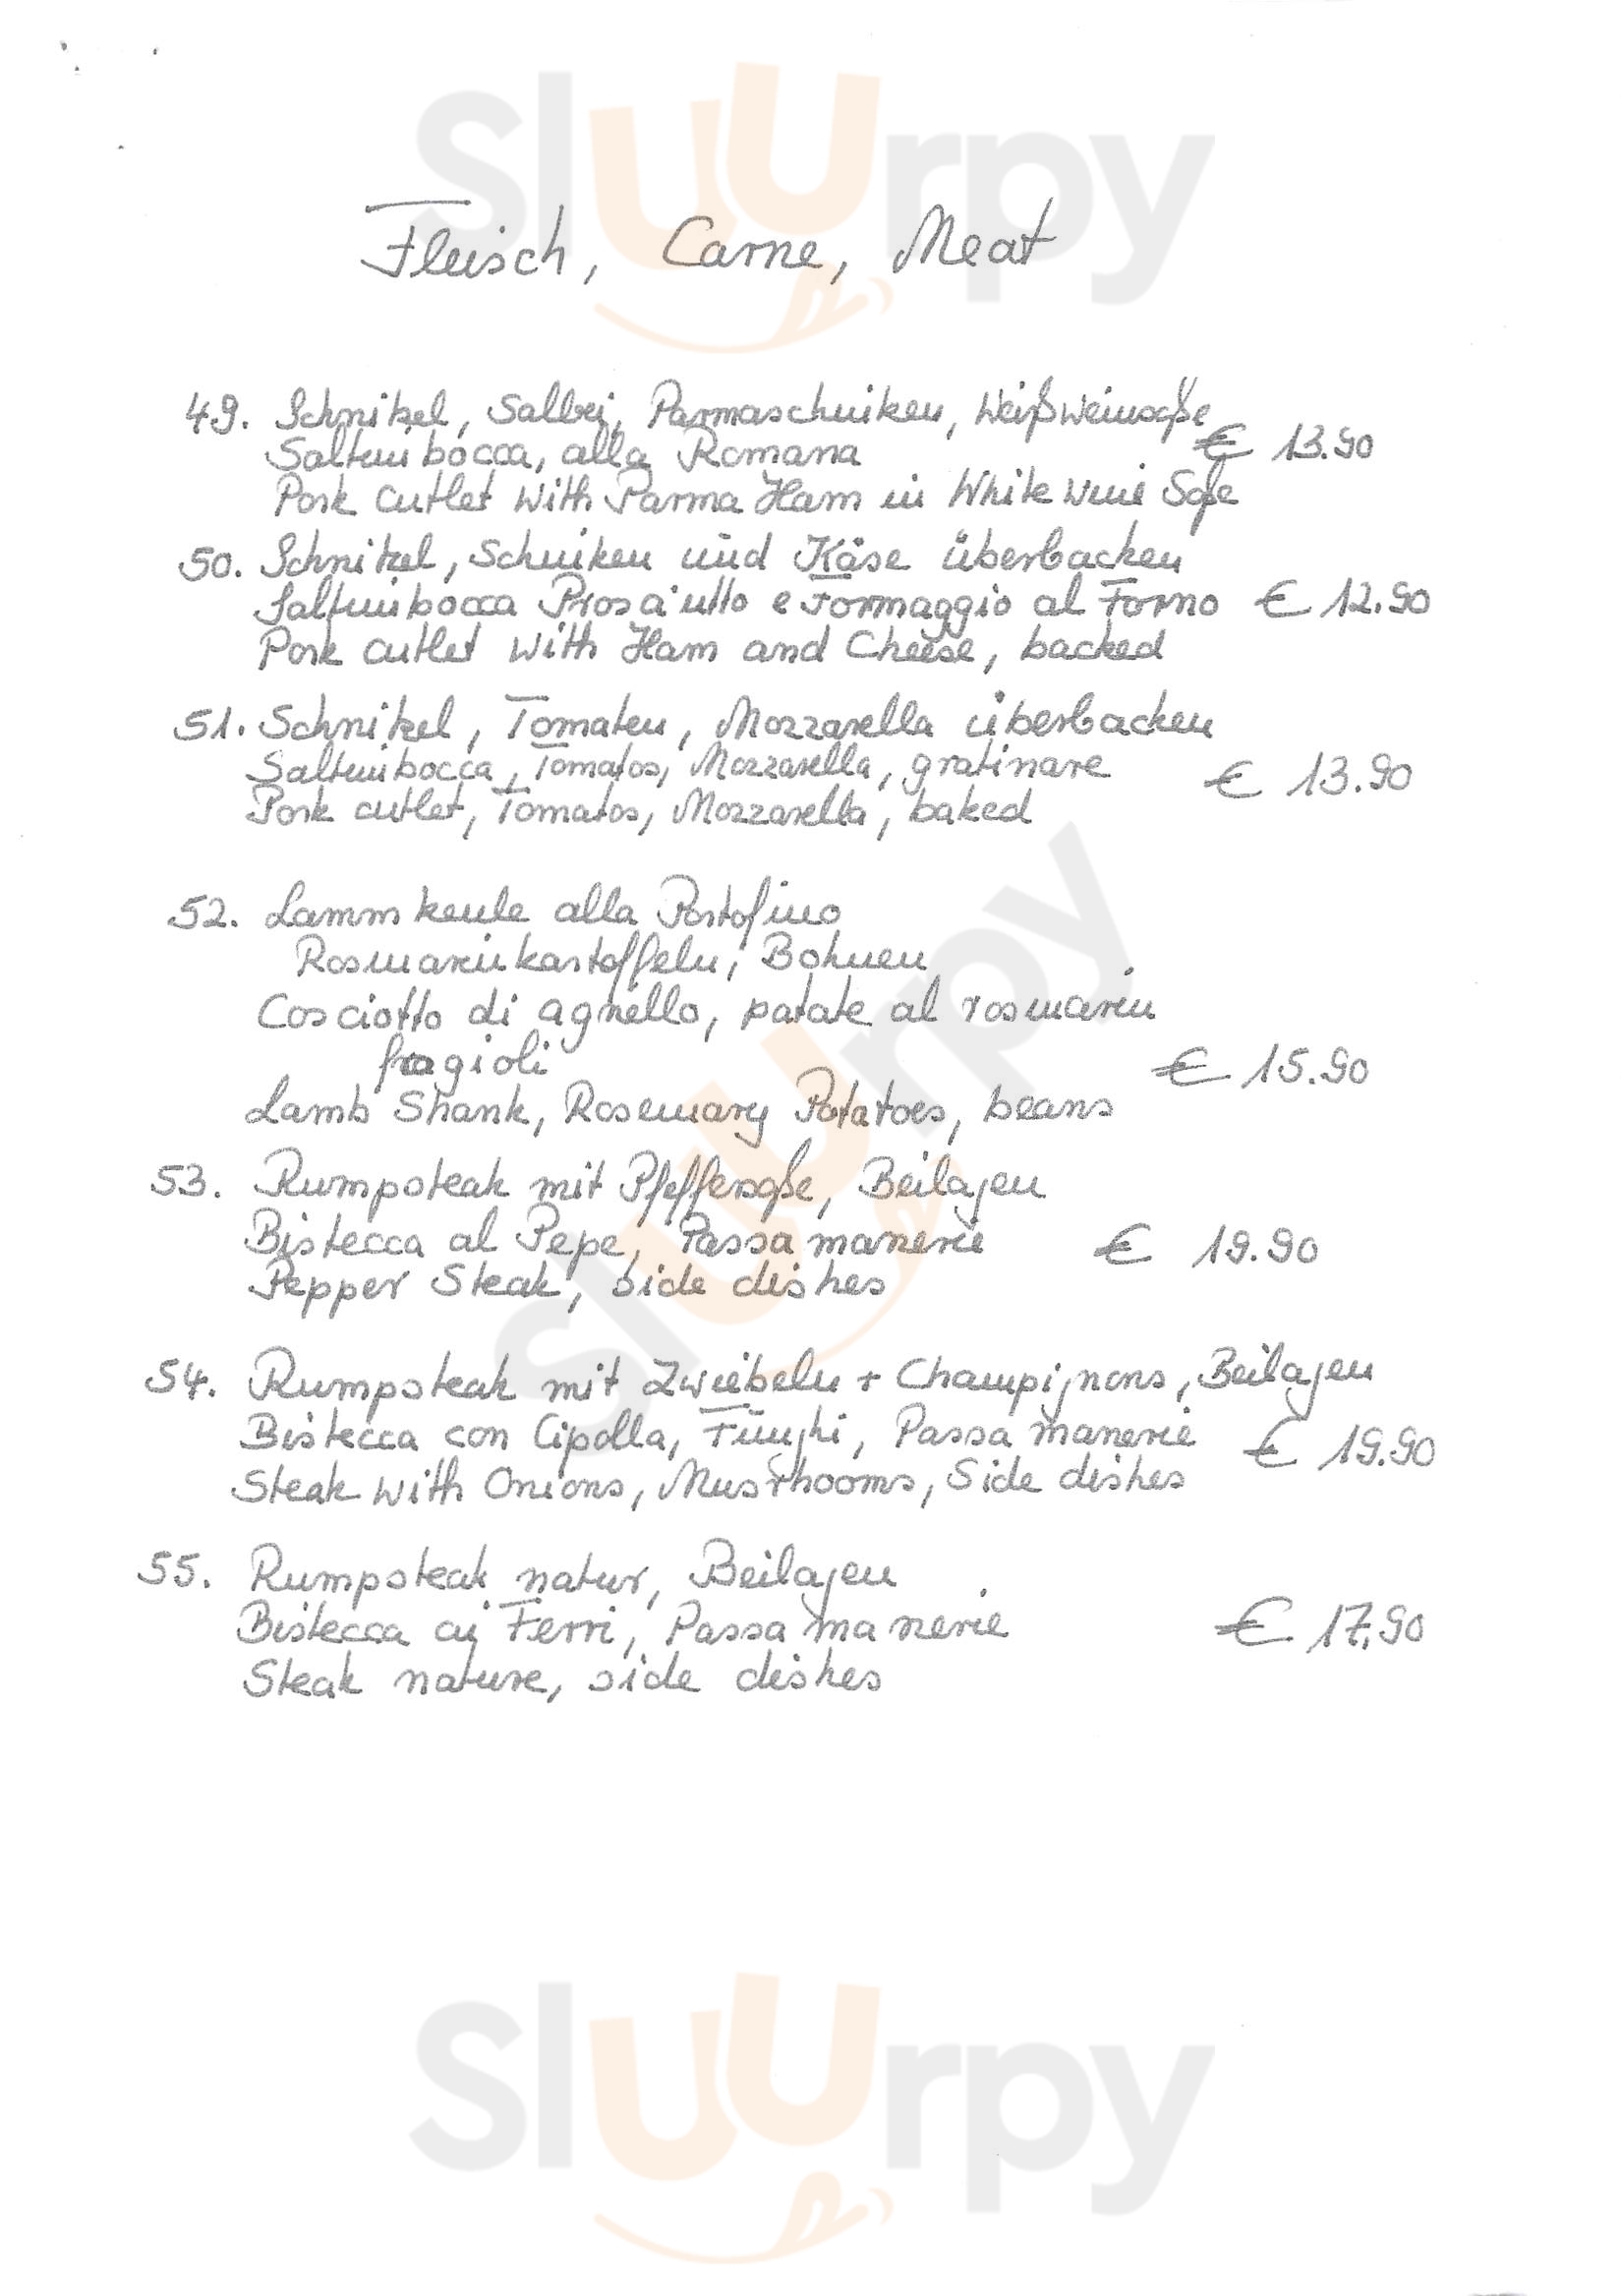 Sluurpy
Fleisch, Carne, Meat
49. Schnitzel, Salbei, Parmaschinken, Weißweinsoße
Saltimbocca, alla Romana € 13.90
Pork cutlet with Parma Ham in White wine Soße
50. Schnitzel, Schinken und Käse überbacken
Saltimbocca Prosciutto e Formaggio al Forno € 12.90
Pork cutlet with Ham and Cheese, backed
51. Schnitzel, Tomaten, Mozzarella überbacken
Saltimbocca, Tomatos, Mozzarella, gratinare € 13.90
Pork cutlet, Tomatos, Mozzarella, baked
52. Lammkeule alla Portofino
Rosmarinkartoffeln, Bohnen
Cosciotto di agnello, patate al rosmarin
fagioli € 15.90
Lamb Shank, Rosemary Potatoes, beans
53. Rumpsteak mit Pfeffersoße, Beilagen
Bistecca al Pepe, Passamanerie € 19.90
Pepper Steak, side dishes
54. Rumpsteak mit Zwiebeln + Champignons, Beilagen
Bistecca con Cipolla, Funghi, Passamanerie € 19.90
Steak with Onions, Musrhooms, Side dishes
55. Rumpsteak natur, Beilagen
Bistecca ai Ferri, Passamanerie € 17.90
Steak nature, side dishes
Sluurpy
Sluurpy